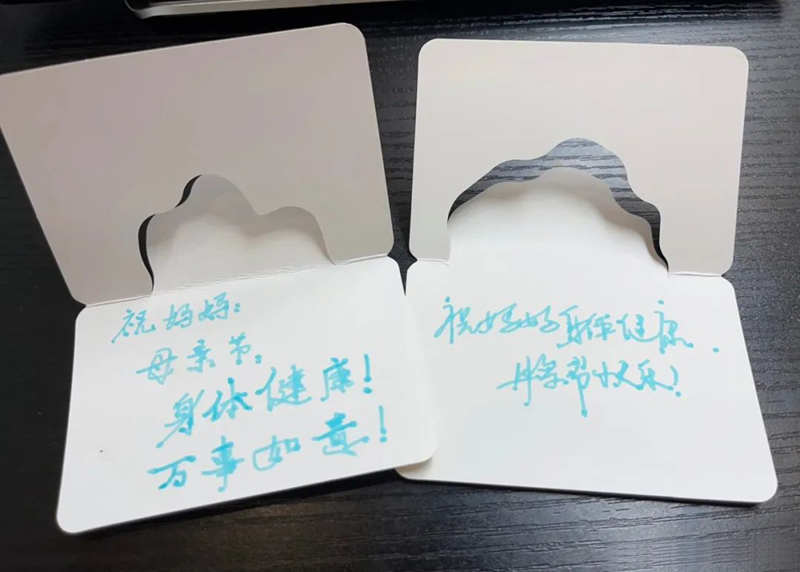 祝妈妈：
母亲节：
身体健康！
万事如意！
祝妈妈身体健康．
母亲节快乐！